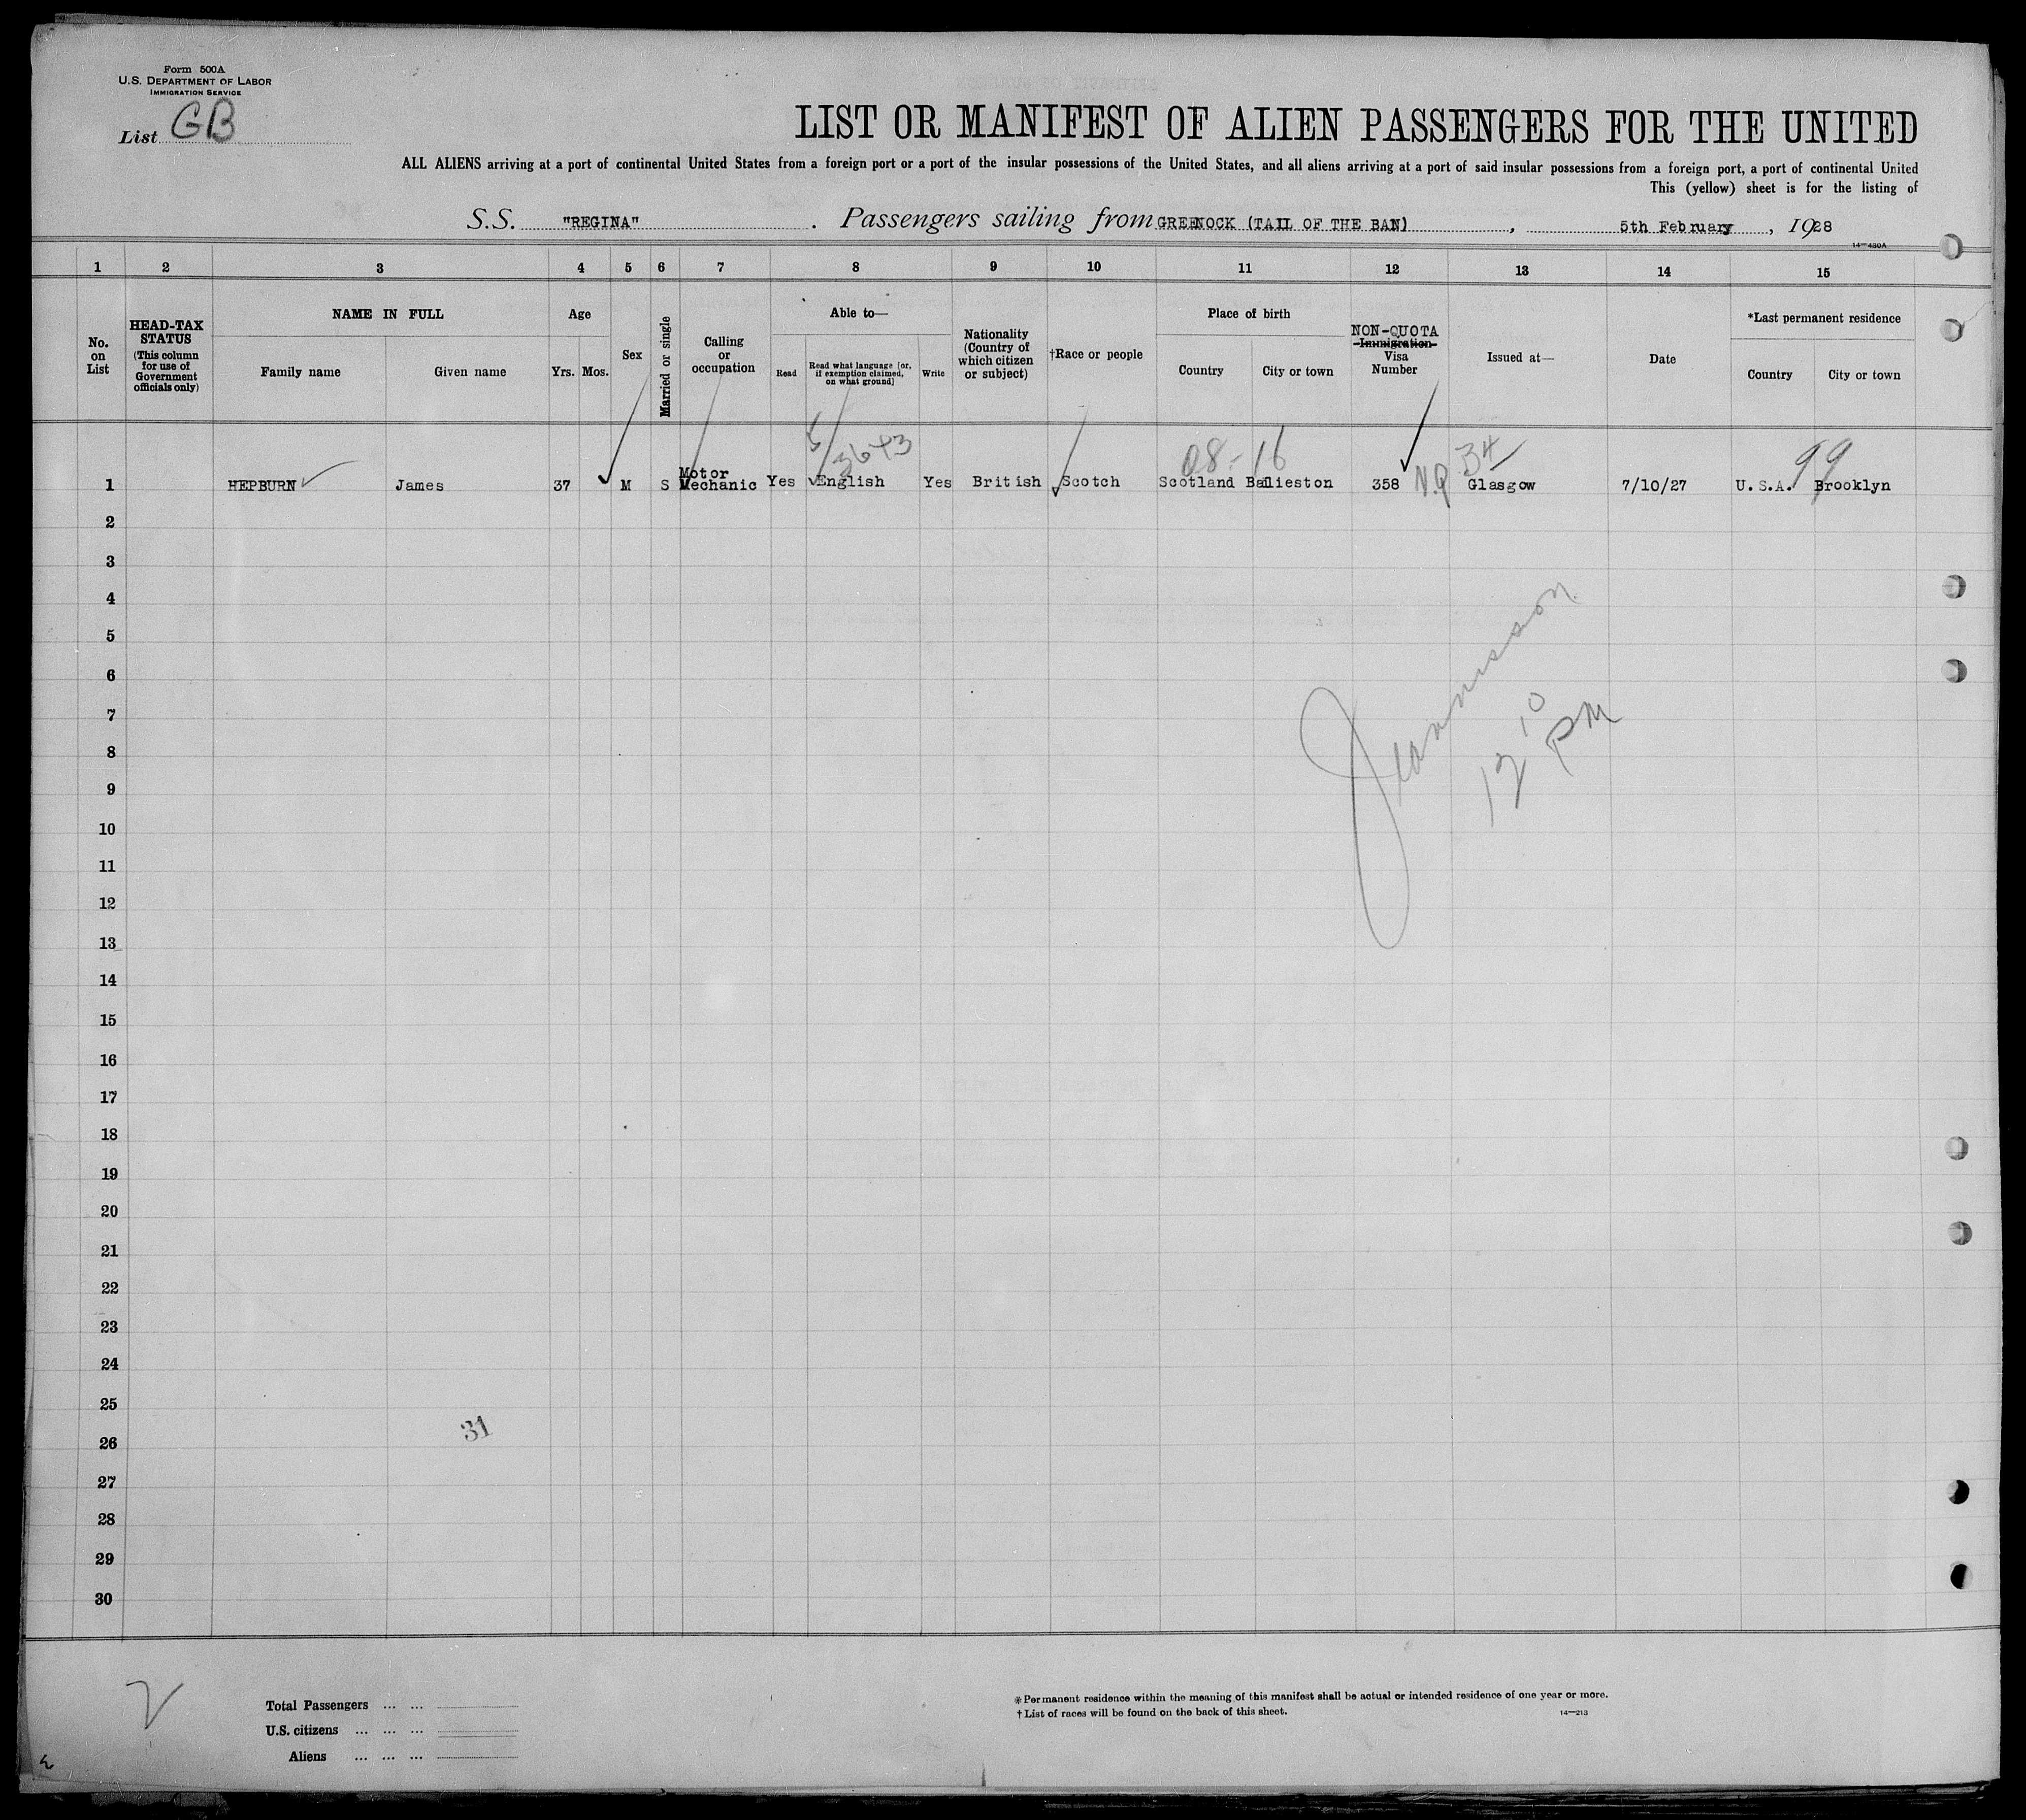 Form 500A
U.S. DEPARTMENT OF LABOR
IMMIGRATION SERVICE
List GB
LIST OR MANIFEST OF ALIEN PASSENGERS FOR THE UNITED
ALL ALIENS arriving at a port of continental United States from a foreign port or a port of the insular possessions of the United States, and all aliens arriving at a port of said insular possessions from a foreign port, a port of continental United
This (yellow) sheet is for the listing of
S.S. "REGINA" . Passengers sailing from GREENOCK (TAIL OF THE BAN) , 5th February , 1928
14—430A
1 2 3 4 5 6 7 8 9 10 11 12 13 14 15
No. on List
HEAD-TAX STATUS
(This column for use of Government officials only)
NAME IN FULL
Family name
Given name
Age
Yrs. Mos.
Sex
Married or single
Calling or occupation
Able to—
Read
Read what language [or, if exemption claimed, on what ground]
Write
Nationality (Country of which citizen or subject)
†Race or people
Place of birth
Country
City or town
NON-QUOTA
Immigration
Visa Number
Issued at—
Date
*Last permanent residence
Country
City or town
3643 08-16 34 99
1 HEPBURN James 37 M S Motor Mechanic Yes English Yes British Scotch Scotland Balieston 358 N.Q Glasgow 7/10/27 U.S.A. Brooklyn
2
3
4
5
6
7
8
9
10
11
12
13
14
15
16
17
18
19
20
21
22
23
24
25
26
27
28
29
30
12 10 PM
31
Total Passengers ... ...
U.S. citizens ... ... ...
Aliens ... ... ...
*Permanent residence within the meaning of this manifest shall be actual or intended residence of one year or more.
† List of races will be found on the back of this sheet.
14—213